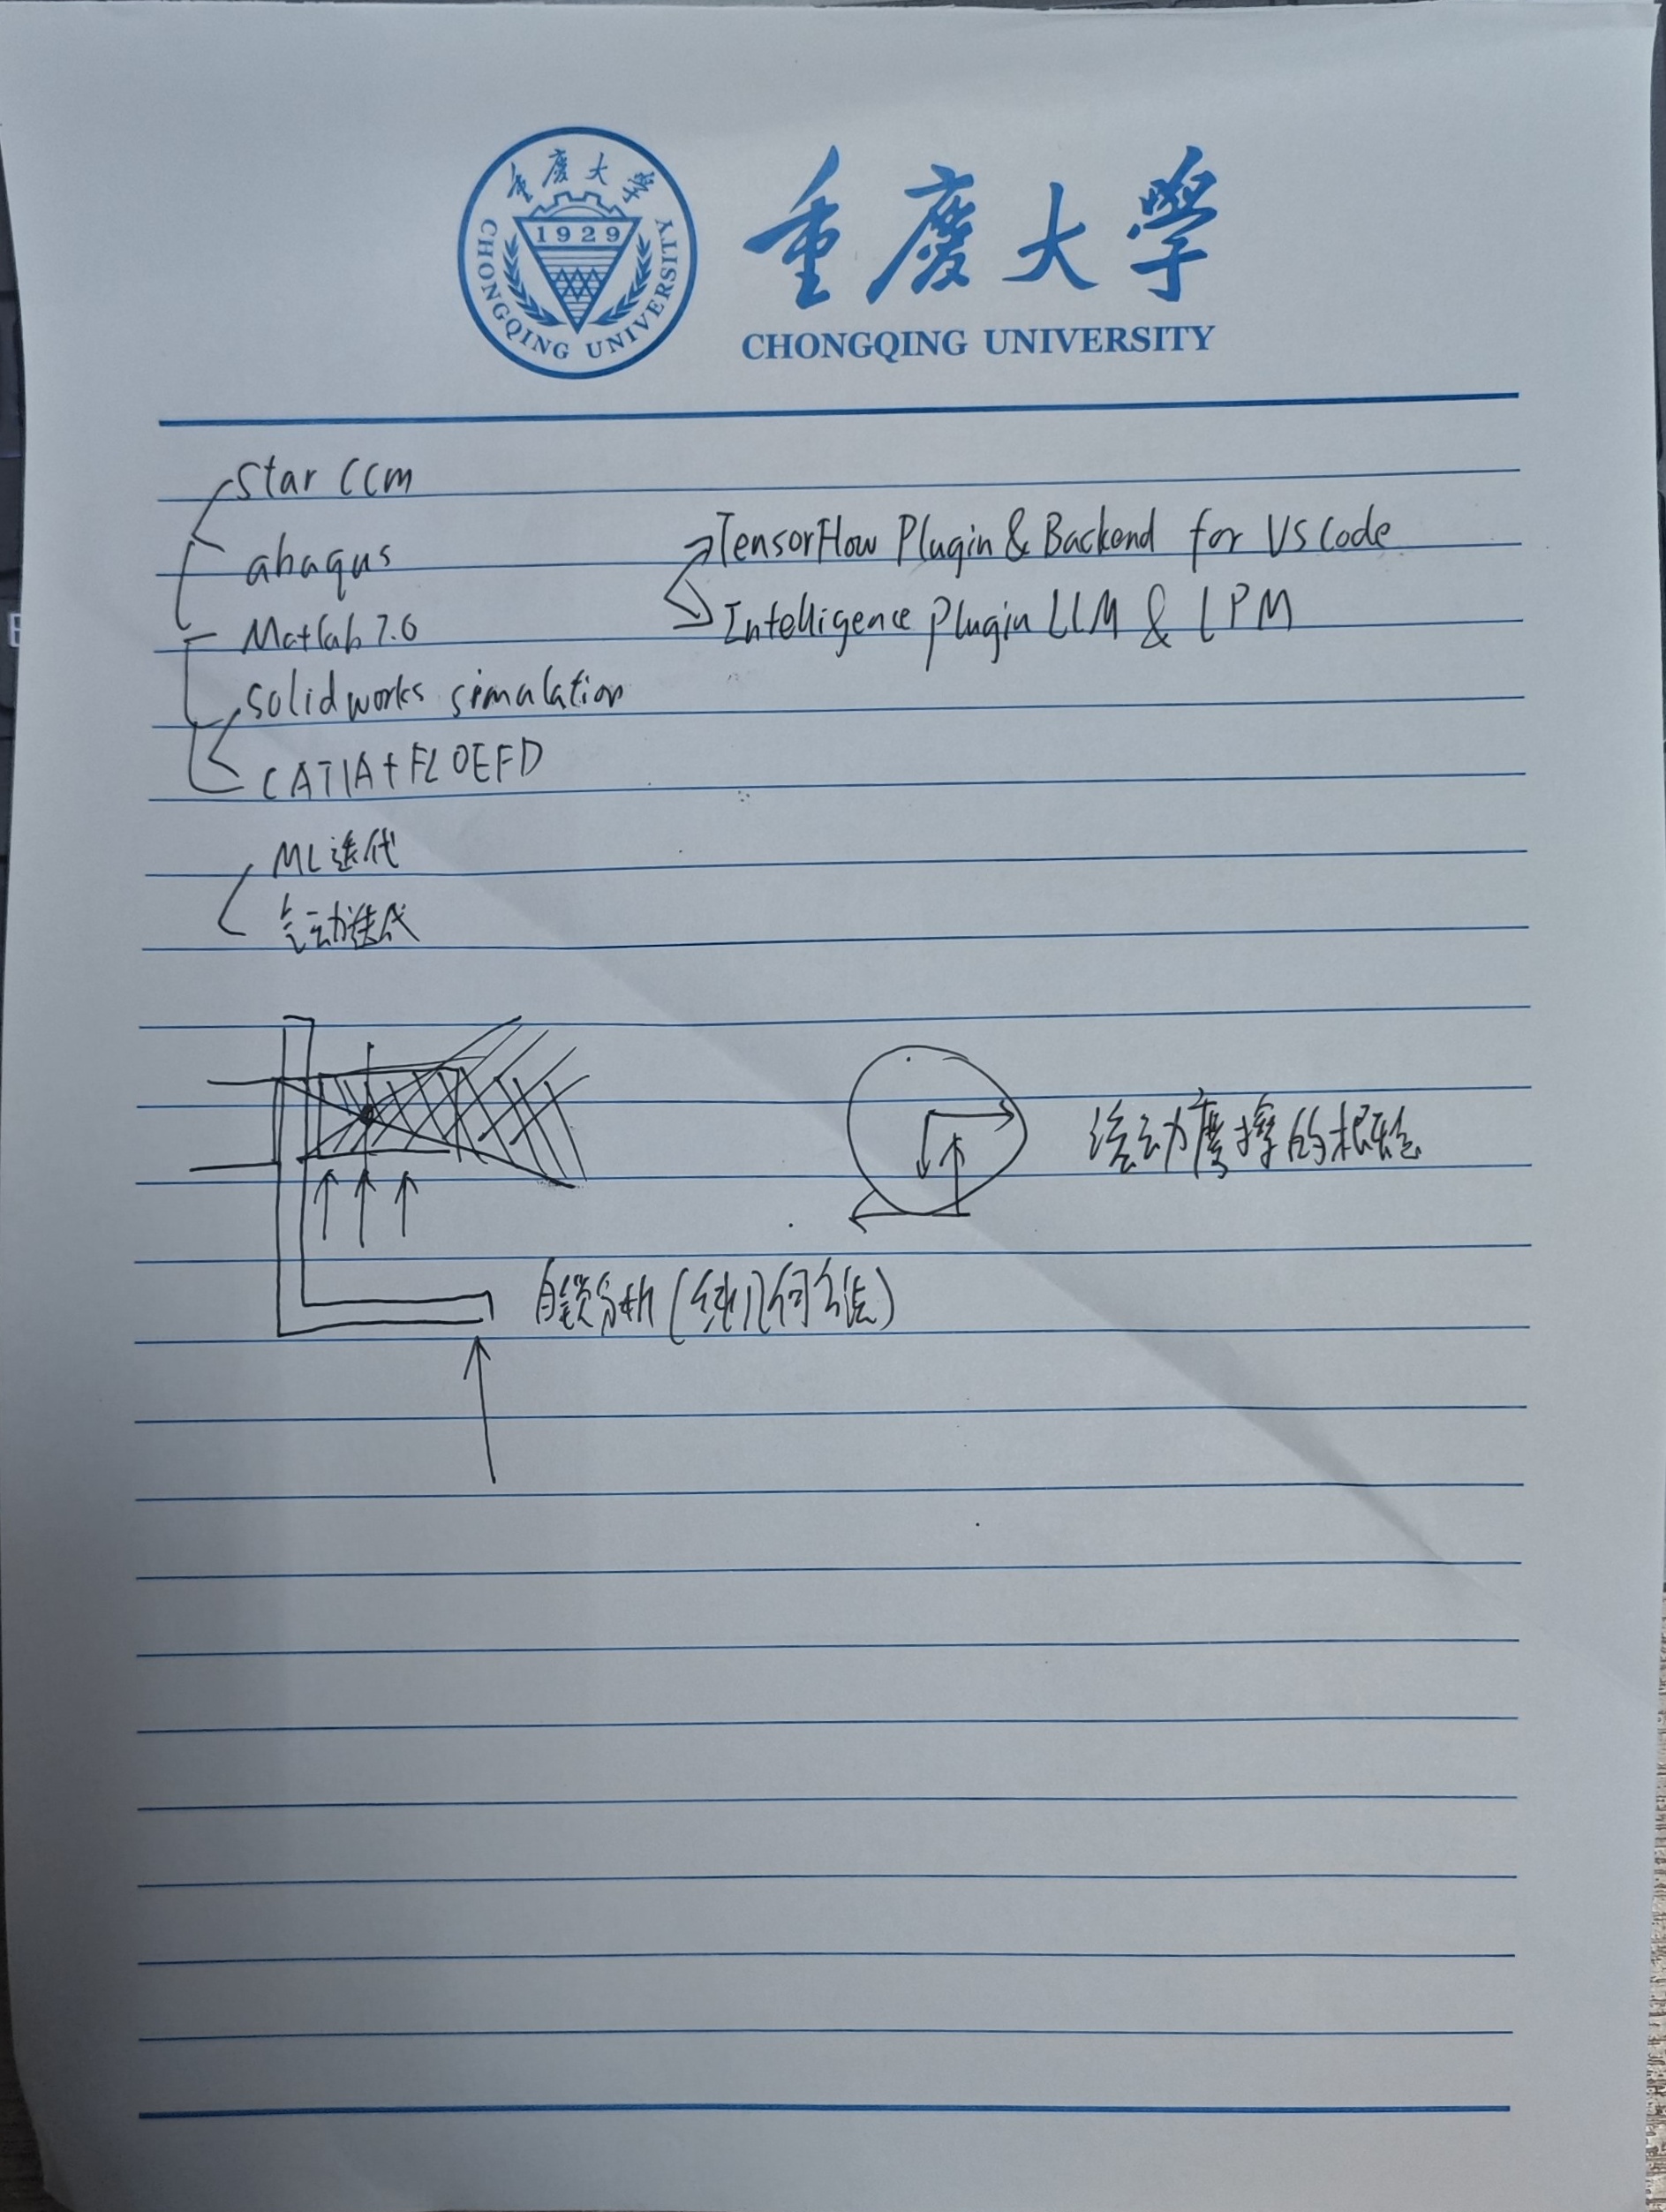 重慶大學
1929
CHONGQING UNIVERSITY
重慶大學
CHONGQING UNIVERSITY
Star CCM
abaqus
Matlab 7.0
Solidworks simalation
CATIA + FLOEFD
TensorFlow Plugin & Backend for VS Code
Intelligence Plugin LLM & LPM
ML迭代
气动迭代
滚动摩擦的
自锁分析(纯几何